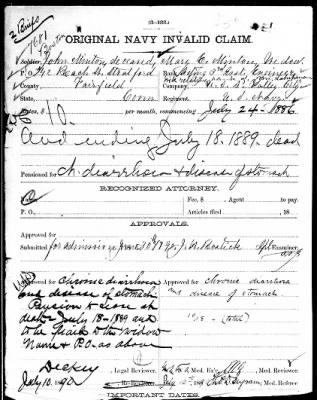 (3-132.)
2 Briefs
ORIGINAL NAVY INVALID CLAIM.
Soldier John Minton, deceased, Mary E. Minton, Widow
P. O. Beach St. Stratford Rank Acting 3rd Asst. Engineer
County, Fairfield Company,
State, Conn Regiment, U. S. Navy
Rate, $10. per month, commencing July 24 - 1886
And ending July 18. 1889. dead
Pensioned for ch diarrhoea & disease of stomach
RECOGNIZED ATTORNEY.
Name Fee, $ Agent to pay.
P. O., Articles filed , 18
APPROVALS.
Approved for
Submitted for admission June 30, 1890, Examiner.
Approved for chronic diarrhoea and disease of stomach. Pension to close at death July 18 - 1889 and to be paid to the widow Name & P.O. as above
Approved for chronic diarrhoea and disease of stomach
(total)
, Legal Reviewer. , Med. Ex'r. , Med. Reviewer.
July 10, 1890 , Re-Reviewer. , Med. Referee
IMPORTANT DATES.